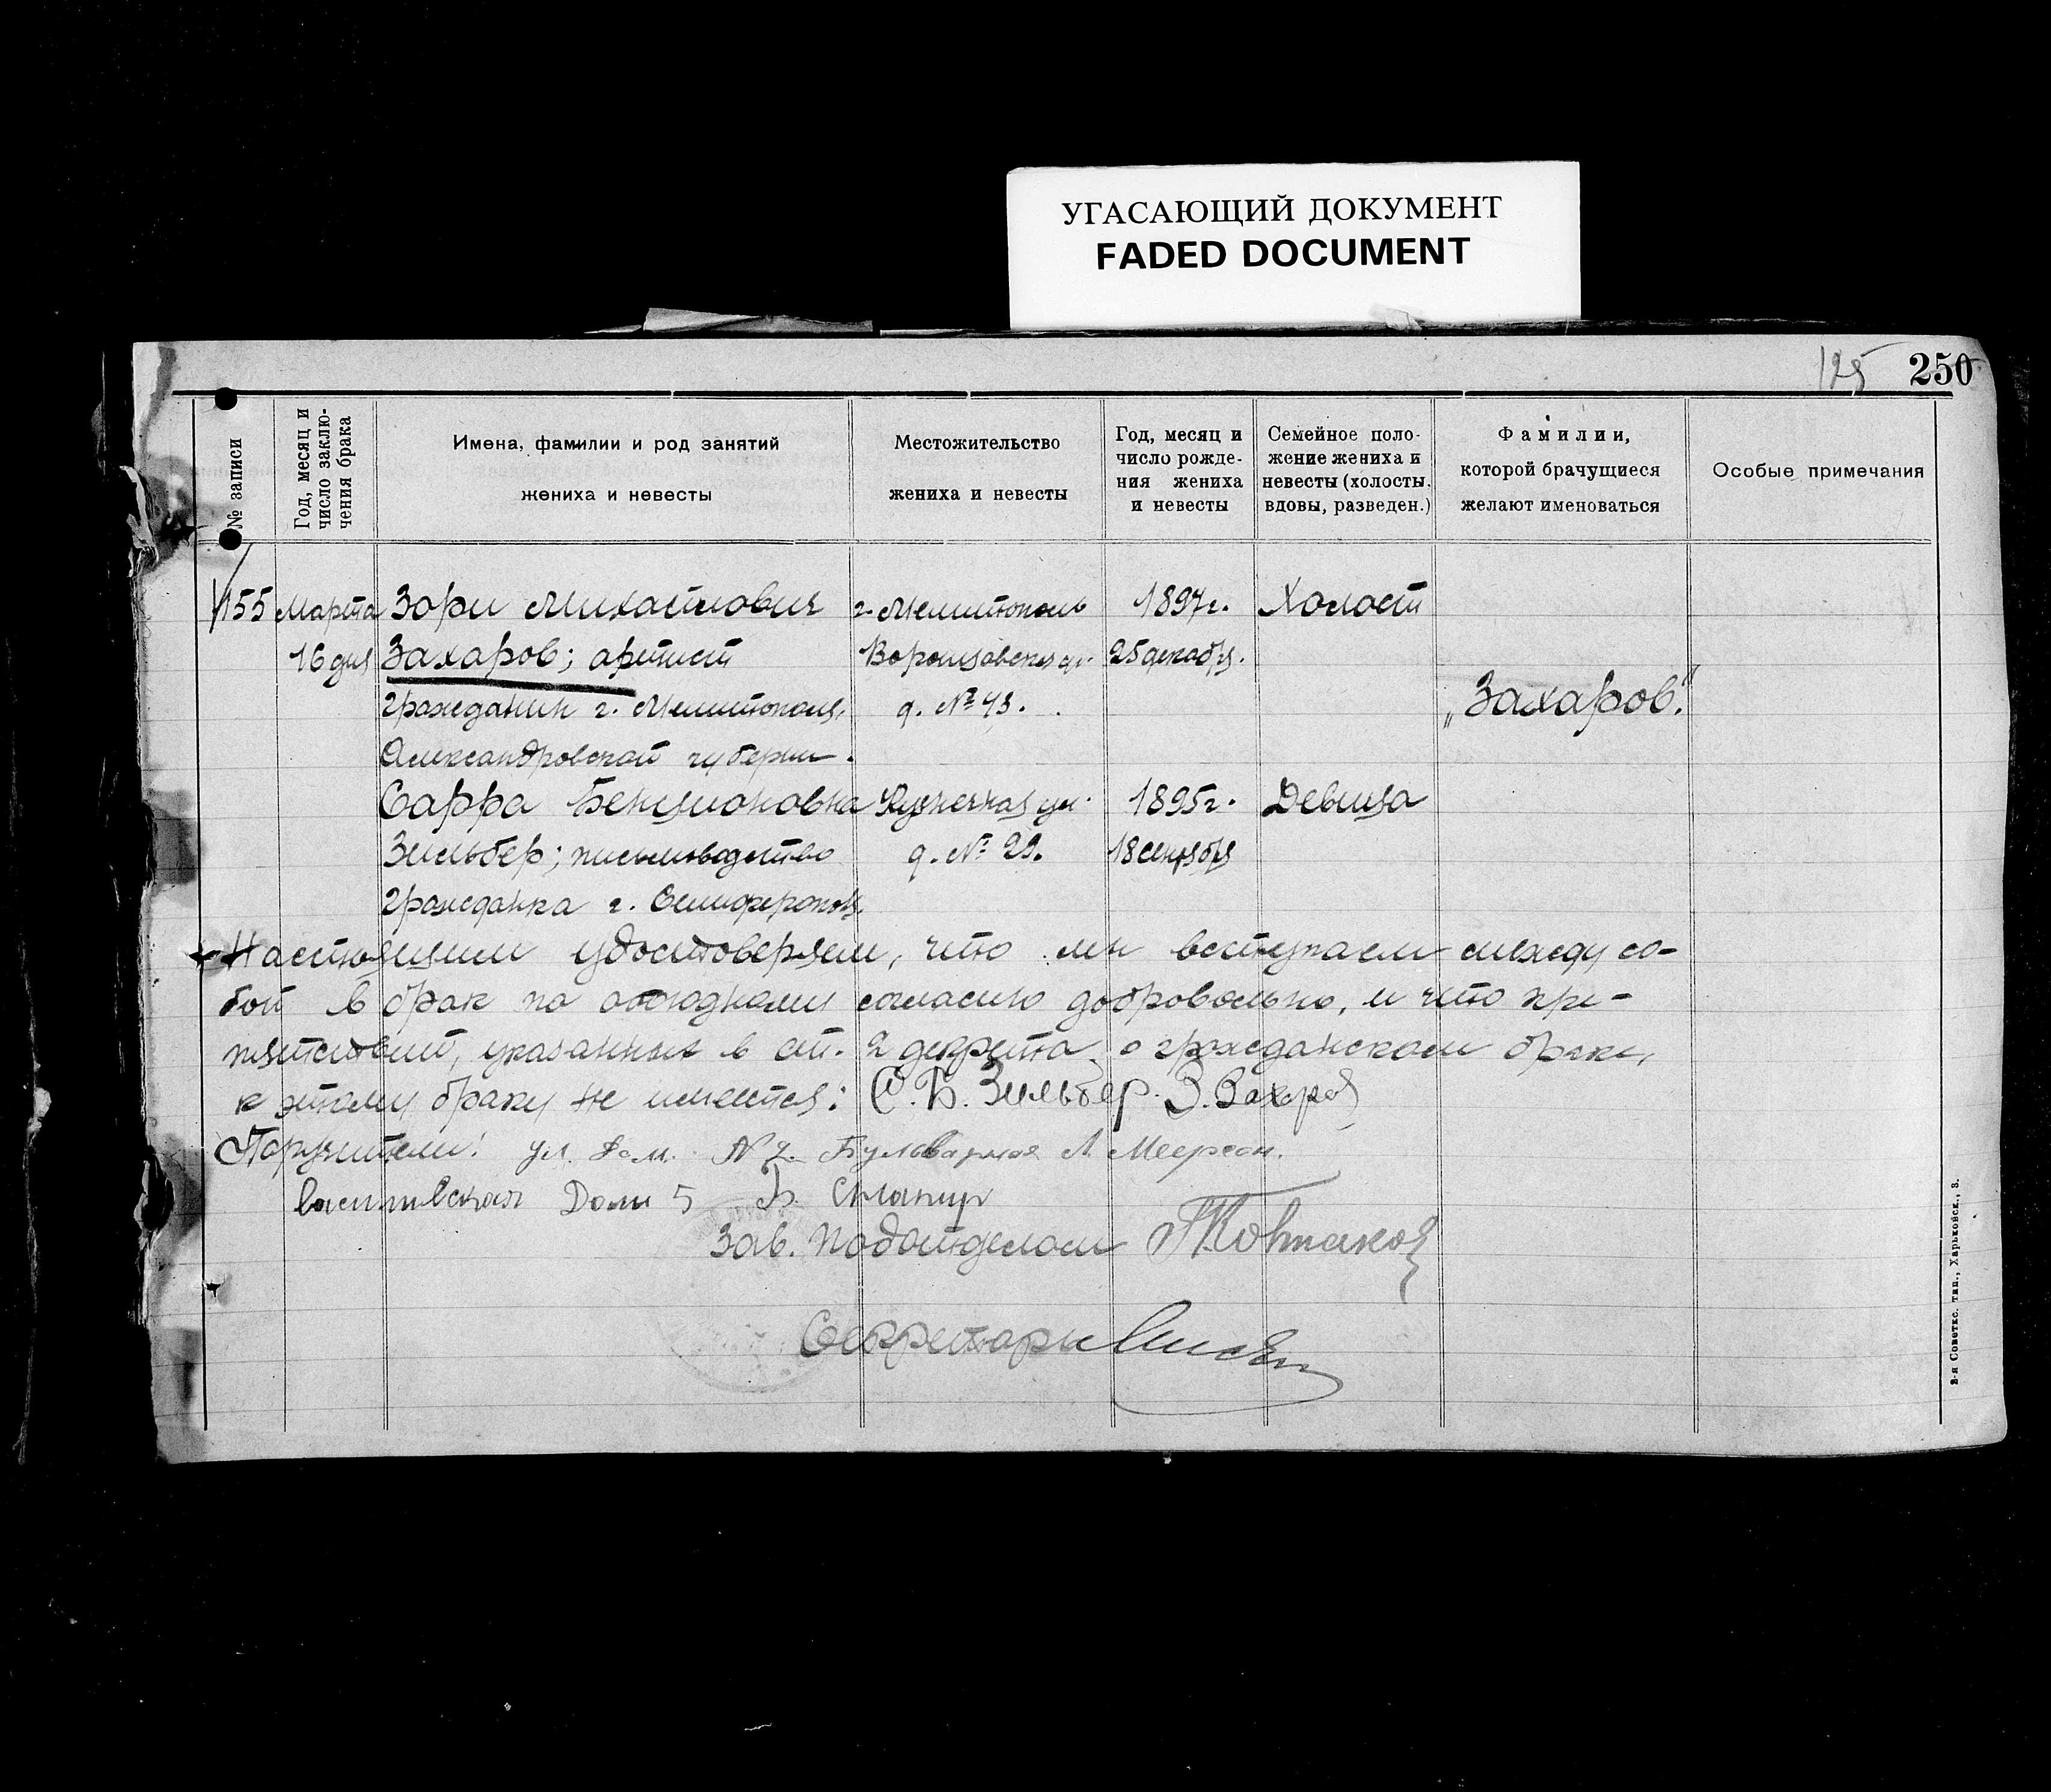 УГАСАЮЩИЙ ДОКУМЕНТ
FADED DOCUMENT
125 250
№ записи
Год, месяц и
число заклю-
чения брака
Имена, фамилии и род занятий
жениха и невесты
Местожительство
жениха и невесты
Год, месяц и
число рожде-
ния жениха
и невесты
Семейное поло-
жение жениха и
невесты (холосты,
вдовы, разведен.)
Фамилии,
которой брачущиеся
желают именоваться
Особые примечания
155 Марта Зори Михайлович г. Мелитополь 1897г. Холост
16 дня Захаров; артист Воронцовская ул. 25 декабря.
гражданин г. Мелитополя, д. № 43. „Захаров."
Александровской губернии.
Сарра Бенционовна Кузнечная ул. 1895г. Девица
Зильбер; письмоводство д. № 29. 18 сентября
гражданка г. Симферополя.
Настоящим удостоверяем, что мы вступаем между со-
бой в брак по обоюдному согласию добровольно, и что пре-
пятствий, указанных в ст. 2 декрета о гражданском браке,
к этому браку не имеется: С. Б. Зильбер. З. Захаров
Поручители: ул. дом. № 2. Бульварная Л. Меерсон.
Василивская Дом 5
Зав. Подотделом
Секретарь
2-я Советск. тип., Харьковск., 3.